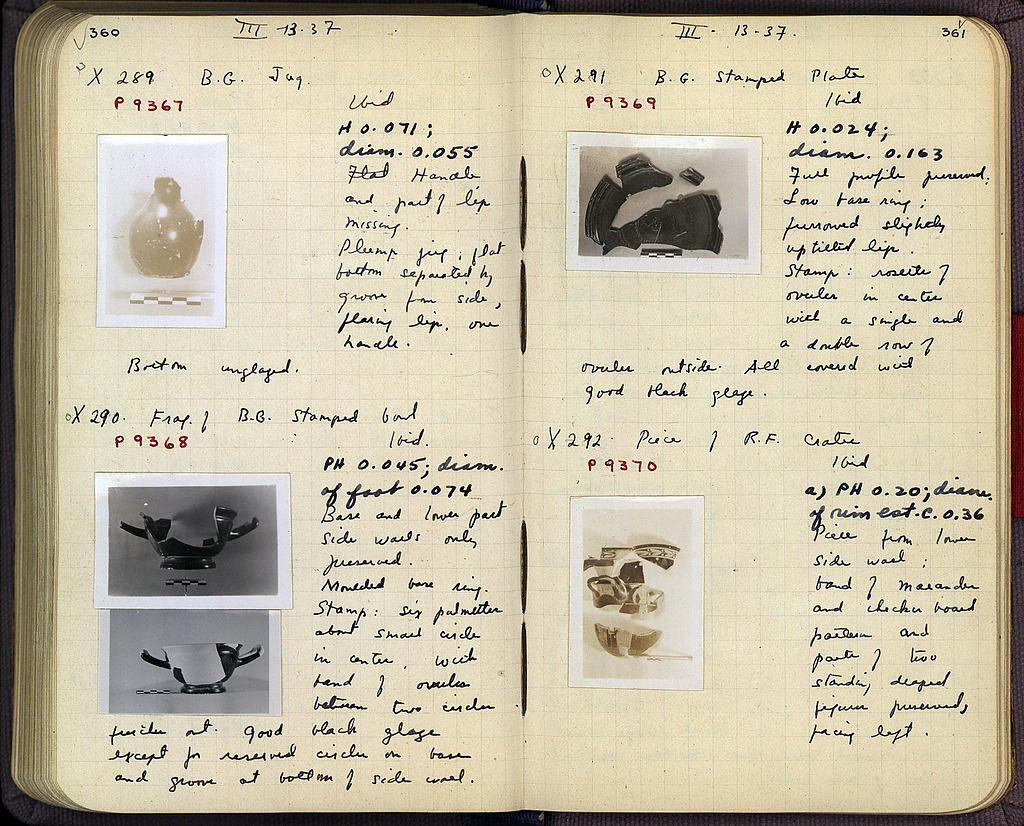 360
III 13-37
X 289 B.G. Jug.
P 9367
Ibid
H 0.071;
diam. 0.055
Flat Handle
and part of lip
missing.
Plump jug; flat
bottom separated by
groove from side,
flaring lip, one
handle.
Bottom unglazed.
X 290. Frag. of B.G. Stamped bowl
P 9368
Ibid.
PH 0.045; diam.
of foot 0.074
Base and lower part
side walls only
preserved.
Moulded base ring.
Stamp: six palmettes
about small circle
in center, with
band of ovules
between two circles
further out. Good black glaze
except for reserved circles on base
and groove at bottom of side wall.
III - 13-37.
361
X 291 B.G. Stamped Plate
P 9369
Ibid
H 0.024;
diam. 0.163
Full profile preserved;
Low base ring;
furrowed slightly
uptilted lip.
Stamp: rosette of
ovules in center
with a single and
a double row of
ovules outside. All covered with
good black glaze.
X 292. Piece of R.F. Crater
P 9370
Ibid
a) PH 0.20; diam.
of rim est. c. 0.36
Piece from lower
side wall;
band of maeander
and checker board
pattern and
parts of two
standing draped
figures preserved,
facing left.